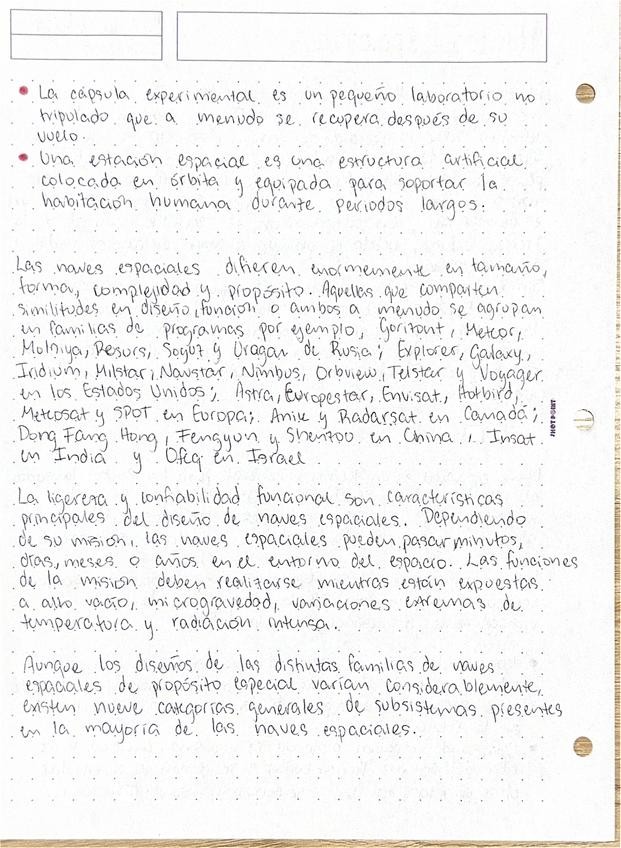 La cápsula experimental es un pequeño laboratorio no
tripulado que a menudo se recupera después de su
vuelo.
Una estación espacial es una estructura artificial
colocada en órbita y equipada para soportar la
habitación humana durante periodos largos.
Las naves espaciales difieren enormemente en tamaño,
forma, complejidad y propósito. Aquellas que comparten
similitudes en diseño, función o ambos a menudo se agrupan
en familias de programas por ejemplo, Gorizont, Meteor,
Molniya, Resurs, Soyuz y Uragan de Rusia; Explorer, Galaxy,
Iridium, Milstar, Navstar, Nimbus, Orbview, Telstar y Voyager
en los Estados Unidos; Astra, Europestar, Envisat, Hotbird,
Meteosat y SPOT en Europa; Anik y Radarsat en Canadá;
Dong Fang Hong, Fengyun y Shenzou en China, Insat
en India y Ofeq en Israel
La ligereza y confiabilidad funcional son características
principales del diseño de naves espaciales. Dependiendo
de su misión, las naves espaciales pueden pasar minutos,
días, meses o años en el entorno del espacio. Las funciones
de la misión deben realizarse mientras están expuestas
a alto vacío, microgravedad, variaciones extremas de
temperatura y radiación intensa.
Aunque los diseños de las distintas familias de naves
espaciales de propósito especial varían considerablemente,
existen nueve categorías generales de subsistemas presentes
en la mayoría de las naves espaciales.